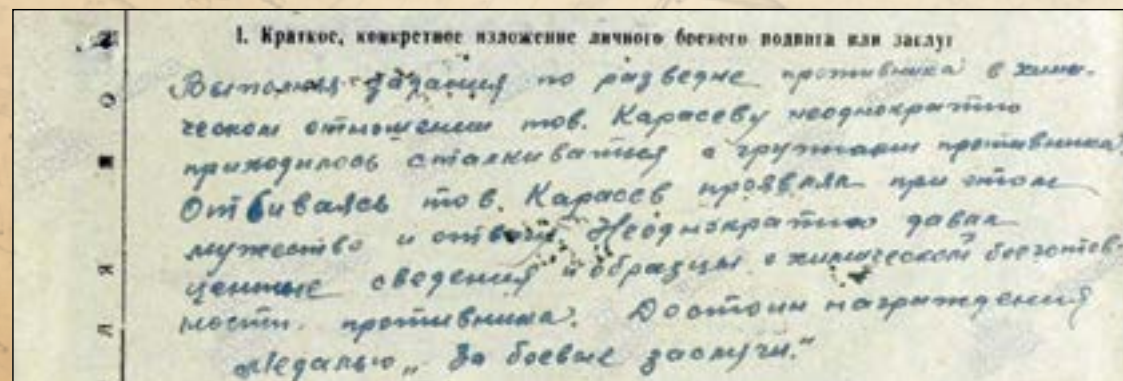 I. Краткое, конкретное изложение личного боевого подвига или заслуг
Выполняя задания по разведке противника в хими-
ческом отношении тов. Карасеву неоднократно
приходилось сталкиваться с группами противника.
Отбиваясь тов. Карасев проявлял при этом
мужество и отвагу. Неоднократно давал
ценные сведения и образцы о химической боеготов-
ности противника. Достоин награждения
Медалью „За боевые заслуги."